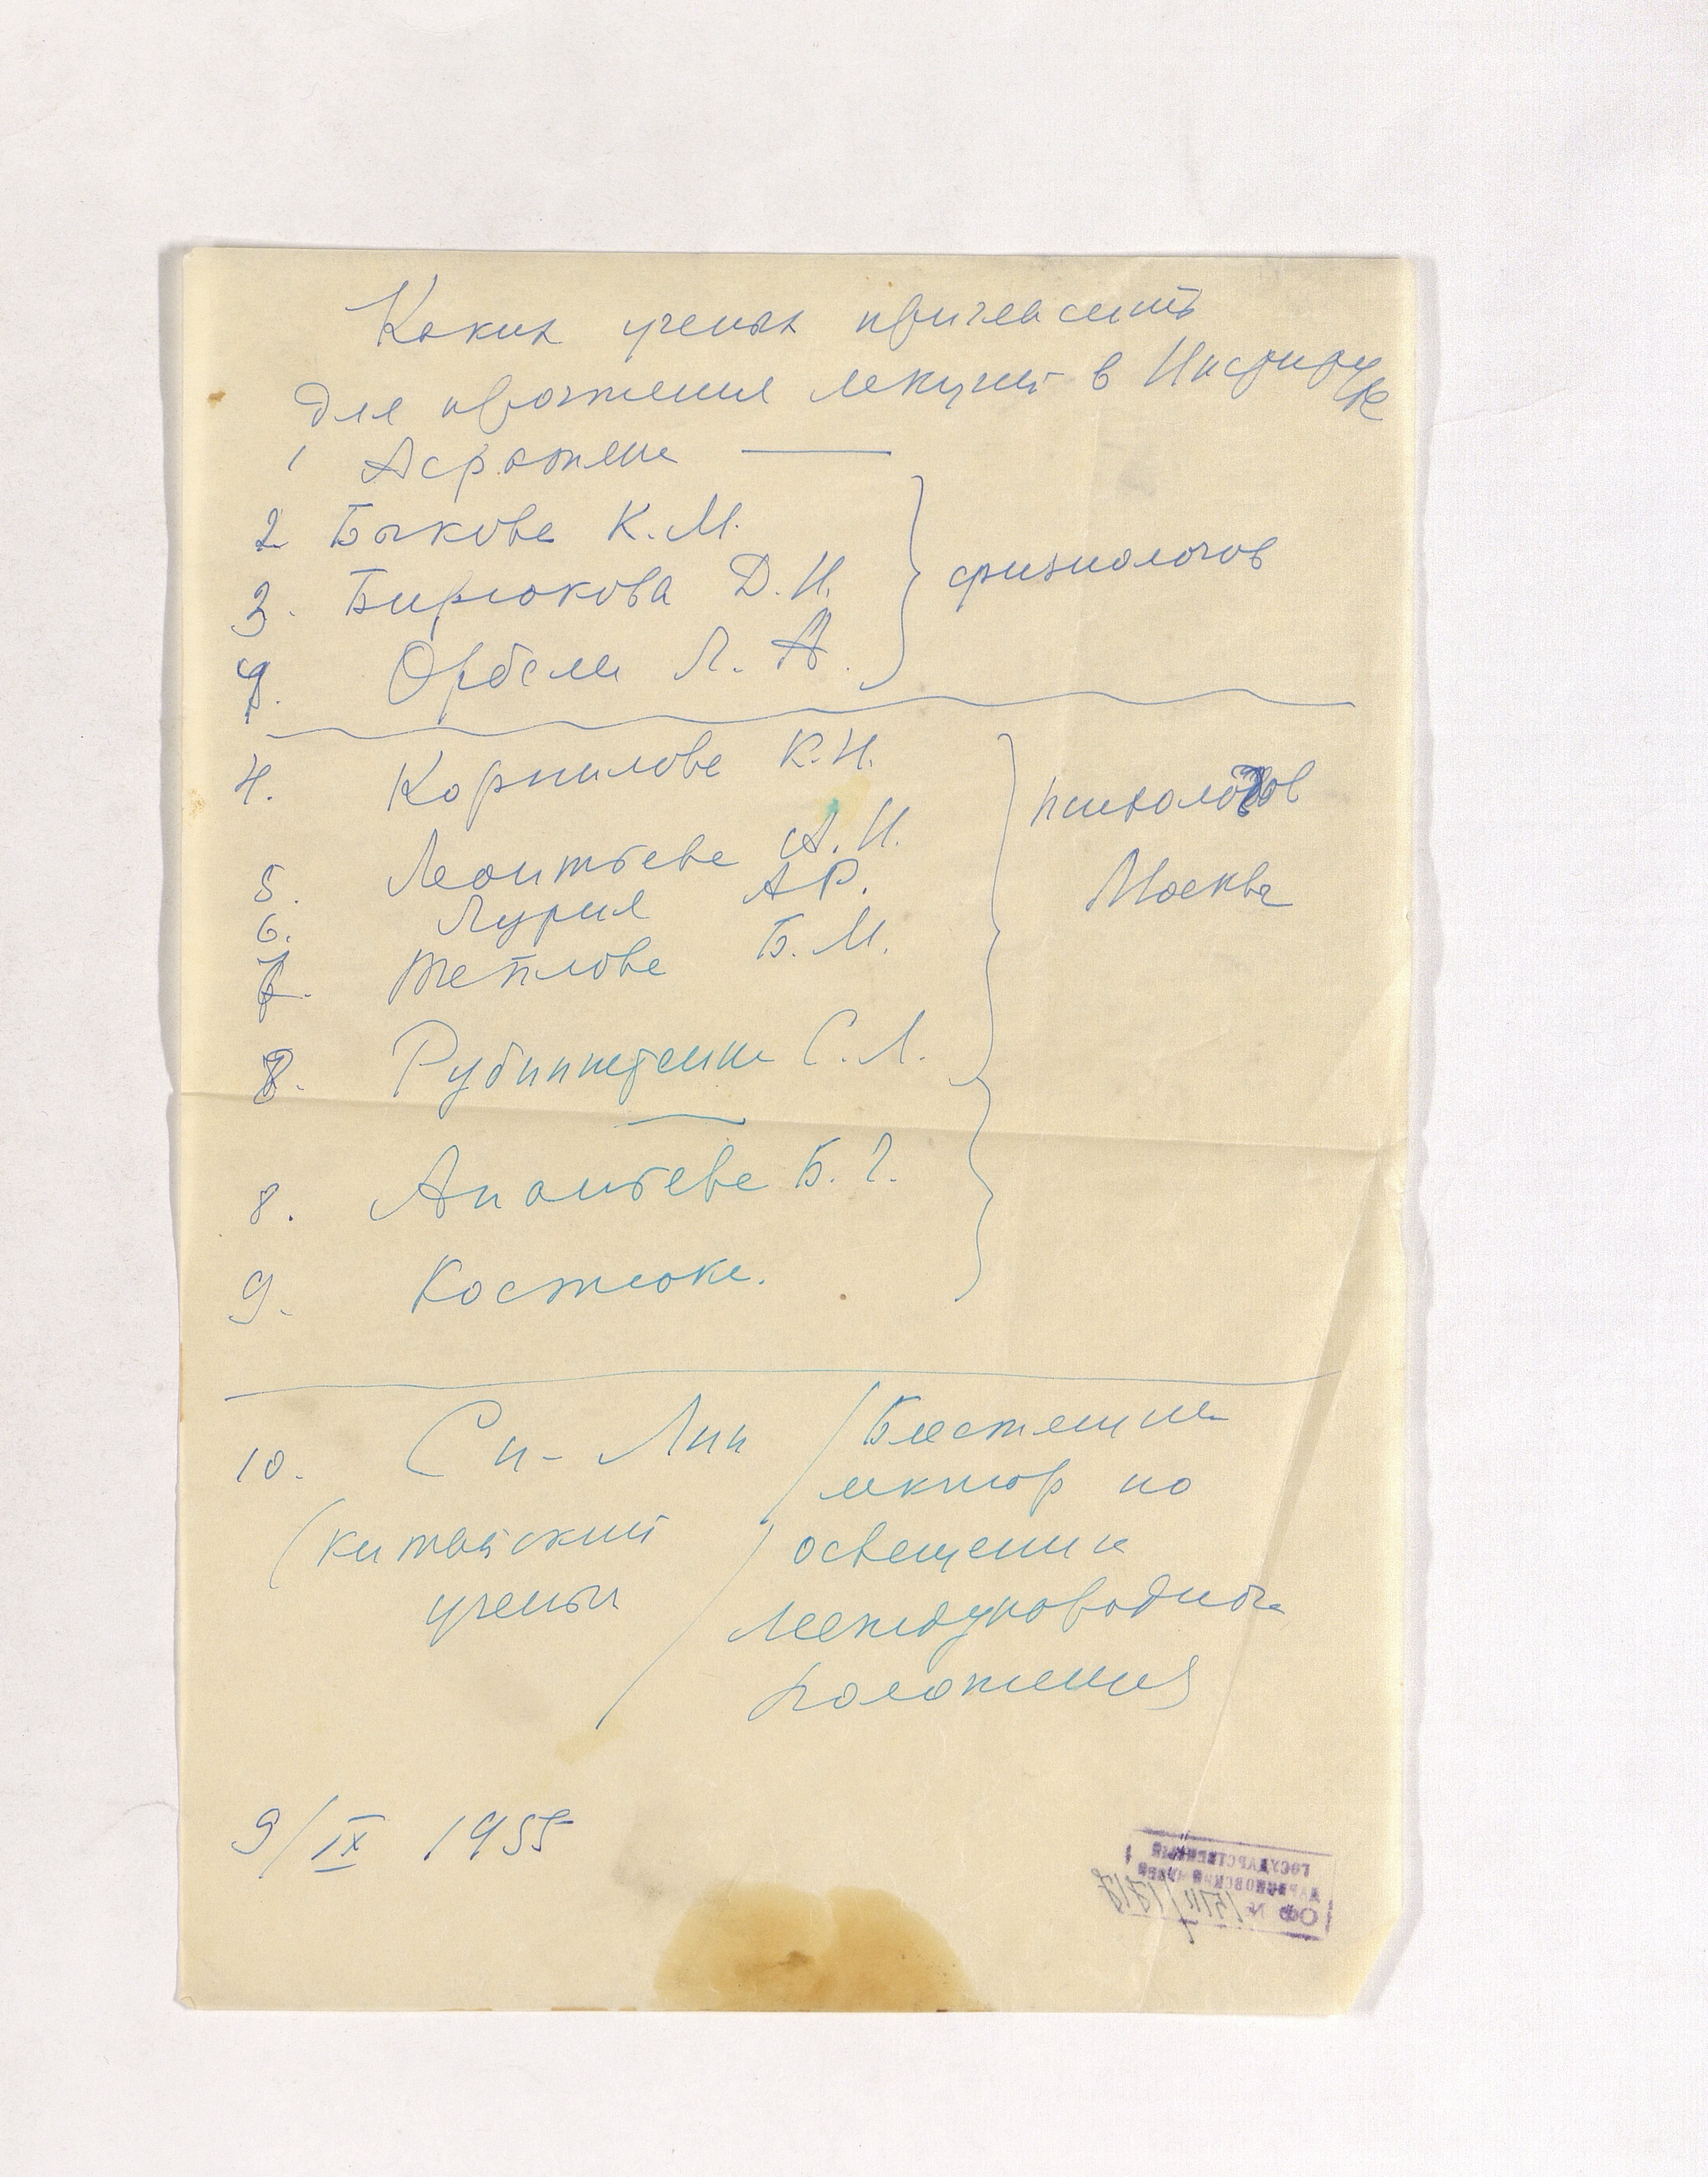 Каких ученых пригласить
для прочтения лекций в Институте
1 Асратяна
2 Быкова К.М.
3. Бирюкова Д.И.
физиологов
4. Орбели Л.А.
4. Корнилова К.Н.
психологов
5. Леонтьева А.Н.
Москва
6. Лурия А.Р.
7. Теплова Б.М.
8. Рубинштейна С.Л.
8. Ананьева Б.Г.
9. Костюка.
10. Си-Лин
(китайский
ученый
/Блестящий
лектор по
освещению
международного
положения
9/IX 1955
ГОСУДАРСТВЕННЫЙ
ДАРВИНОВСКИЙ МУЗЕЙ
ОФ №